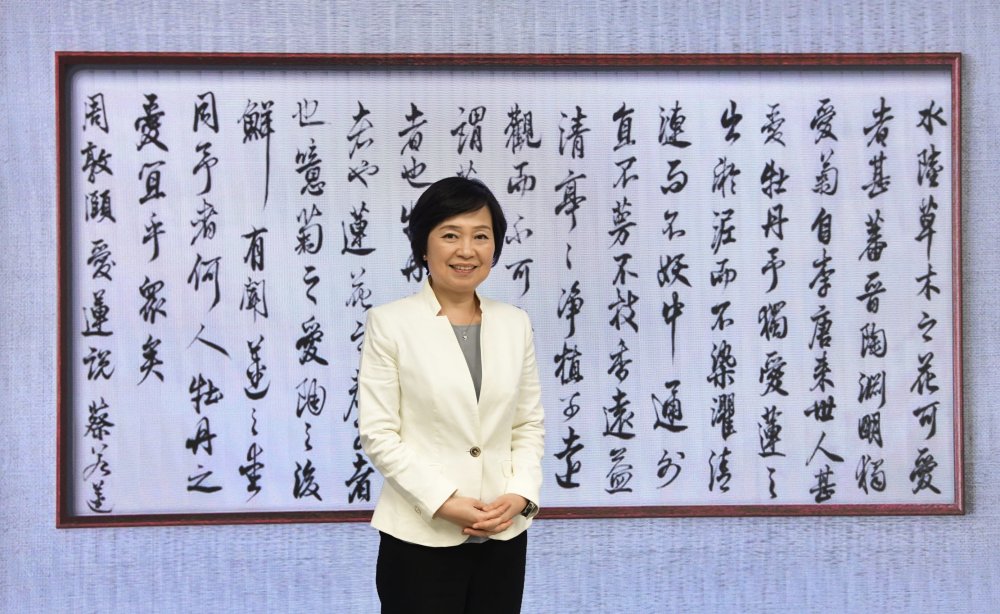 水陸草木之花可愛
者甚蕃晉陶淵明獨
愛菊自李唐來世人甚
愛牡丹予獨愛蓮之
出淤泥而不染濯清
漣而不妖中通外
直不蔓不枝香遠益
清亭〻淨植可遠
觀而不可
謂
者也牡丹
者也蓮花之君子者
也噫菊之愛陶之後
鮮有聞蓮之愛
同予者何人牡丹之
愛宜乎衆矣
周敦頤愛蓮說 蔡若蓮